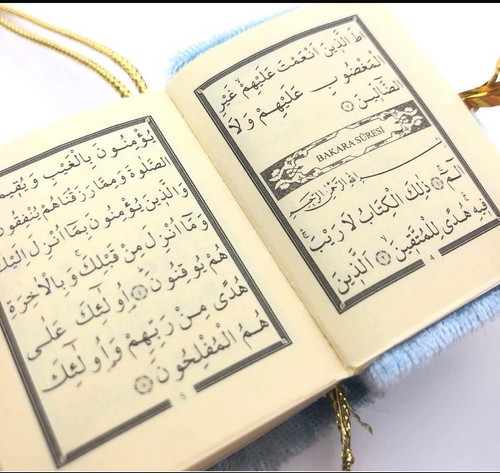 طَ الَّذِينَ اَنْعَمْتَ عَلَيْهِمْ غَيْرِ
الْمَغْضُوبِ عَلَيْهِمْ وَلَا
الضَّالِّينَ ﴿٧﴾
BAKARA SÛRESİ
بِسْمِ اللهِ الرَّحْمٰنِ الرَّحِيمِ
الٓمٓ ﴿١﴾ ذٰلِكَ الْكِتَابُ لَا رَيْبَ
فِيهِ هُدًى لِلْمُتَّقِينَ ﴿٢﴾ اَلَّذِينَ
4
يُؤْمِنُونَ بِالْغَيْبِ وَيُقِيمُ
الصَّلٰوةَ وَمِمَّا رَزَقْنَاهُمْ يُنْفِقُونَ
وَالَّذِينَ يُؤْمِنُونَ بِمَا اُنْزِلَ اِلَيْكَ
وَمَا اُنْزِلَ مِنْ قَبْلِكَ وَبِالْاٰخِرَةِ
هُمْ يُوقِنُونَ ﴿٤﴾ اُولٰئِكَ عَلٰى
هُدًى مِنْ رَبِّهِمْ وَاُولٰئِكَ
هُمُ الْمُفْلِحُونَ ﴿٥﴾
5